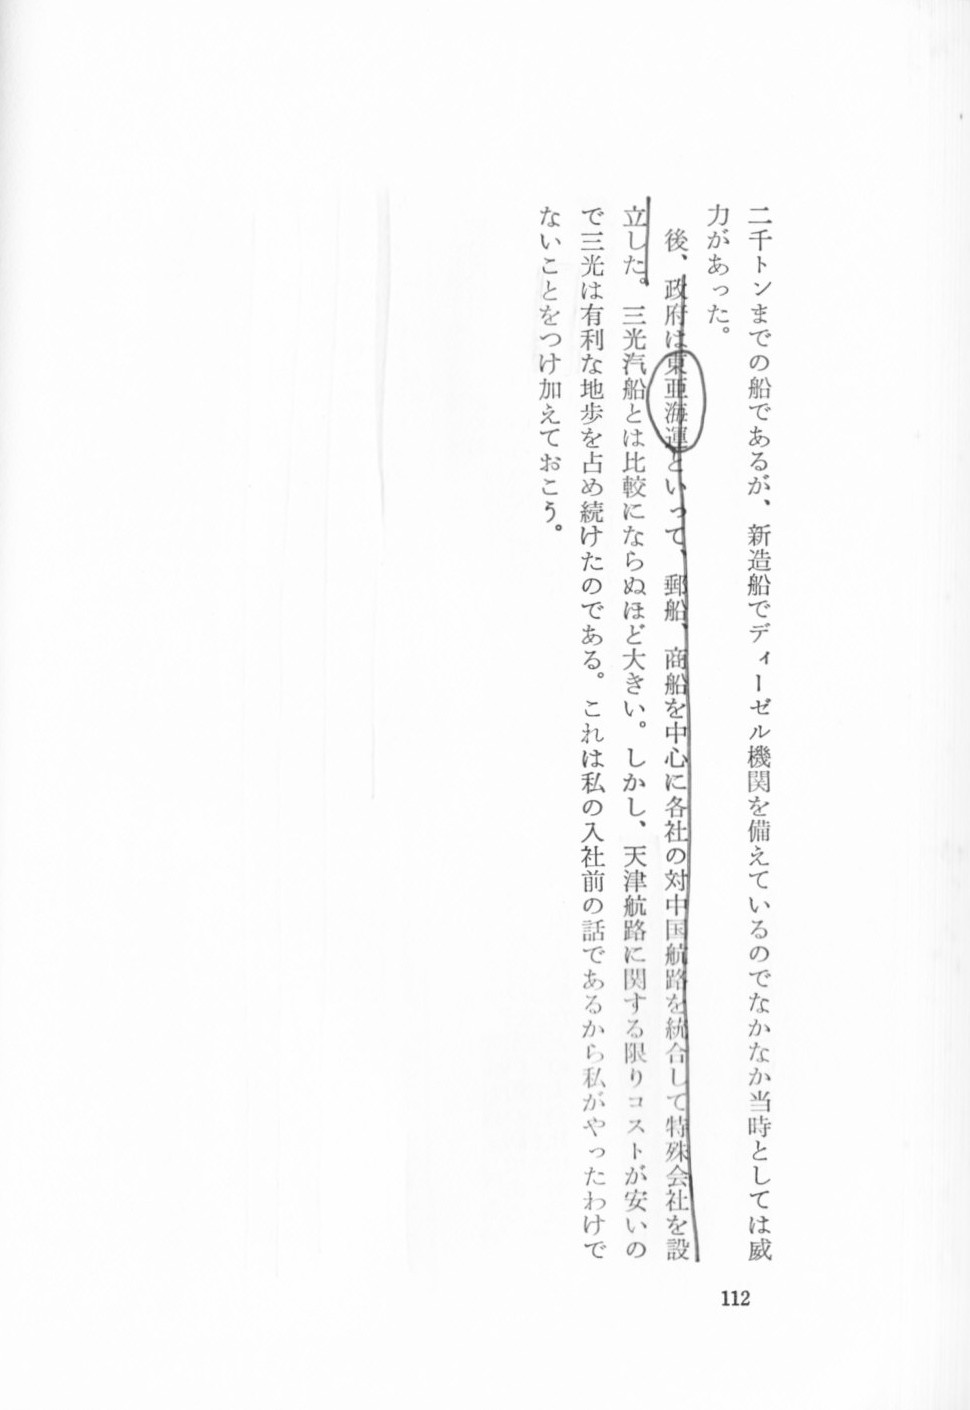 二千トンまでの船であるが、新造船でディーゼル機関を備えているのでなかなか当時としては威
力があった。
後、政府は東亜海運といって、郵船、商船を中心に各社の対中国航路を統合して特殊会社を設
立した。三光汽船とは比較にならぬほど大きい。しかし、天津航路に関する限りコストが安いの
で三光は有利な地歩を占め続けたのである。これは私の入社前の話であるから私がやったわけで
ないことをつけ加えておこう。
112